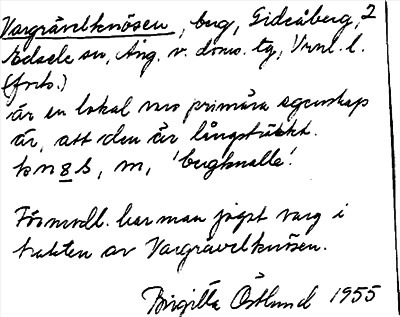 Vargrävelknösen, berg, Gideåberg, 2
Edsele sn, Ång. v. doms. tg, Vrnl. l.
(forts.)
är en lokal vars primära egenskap
är, att den är långsträckt.
knösb, m, 'bergknalle'.
Förmodl. har man jagat varg i
trakten av Vargrävelknösen.
Birgitta Östlund 1955